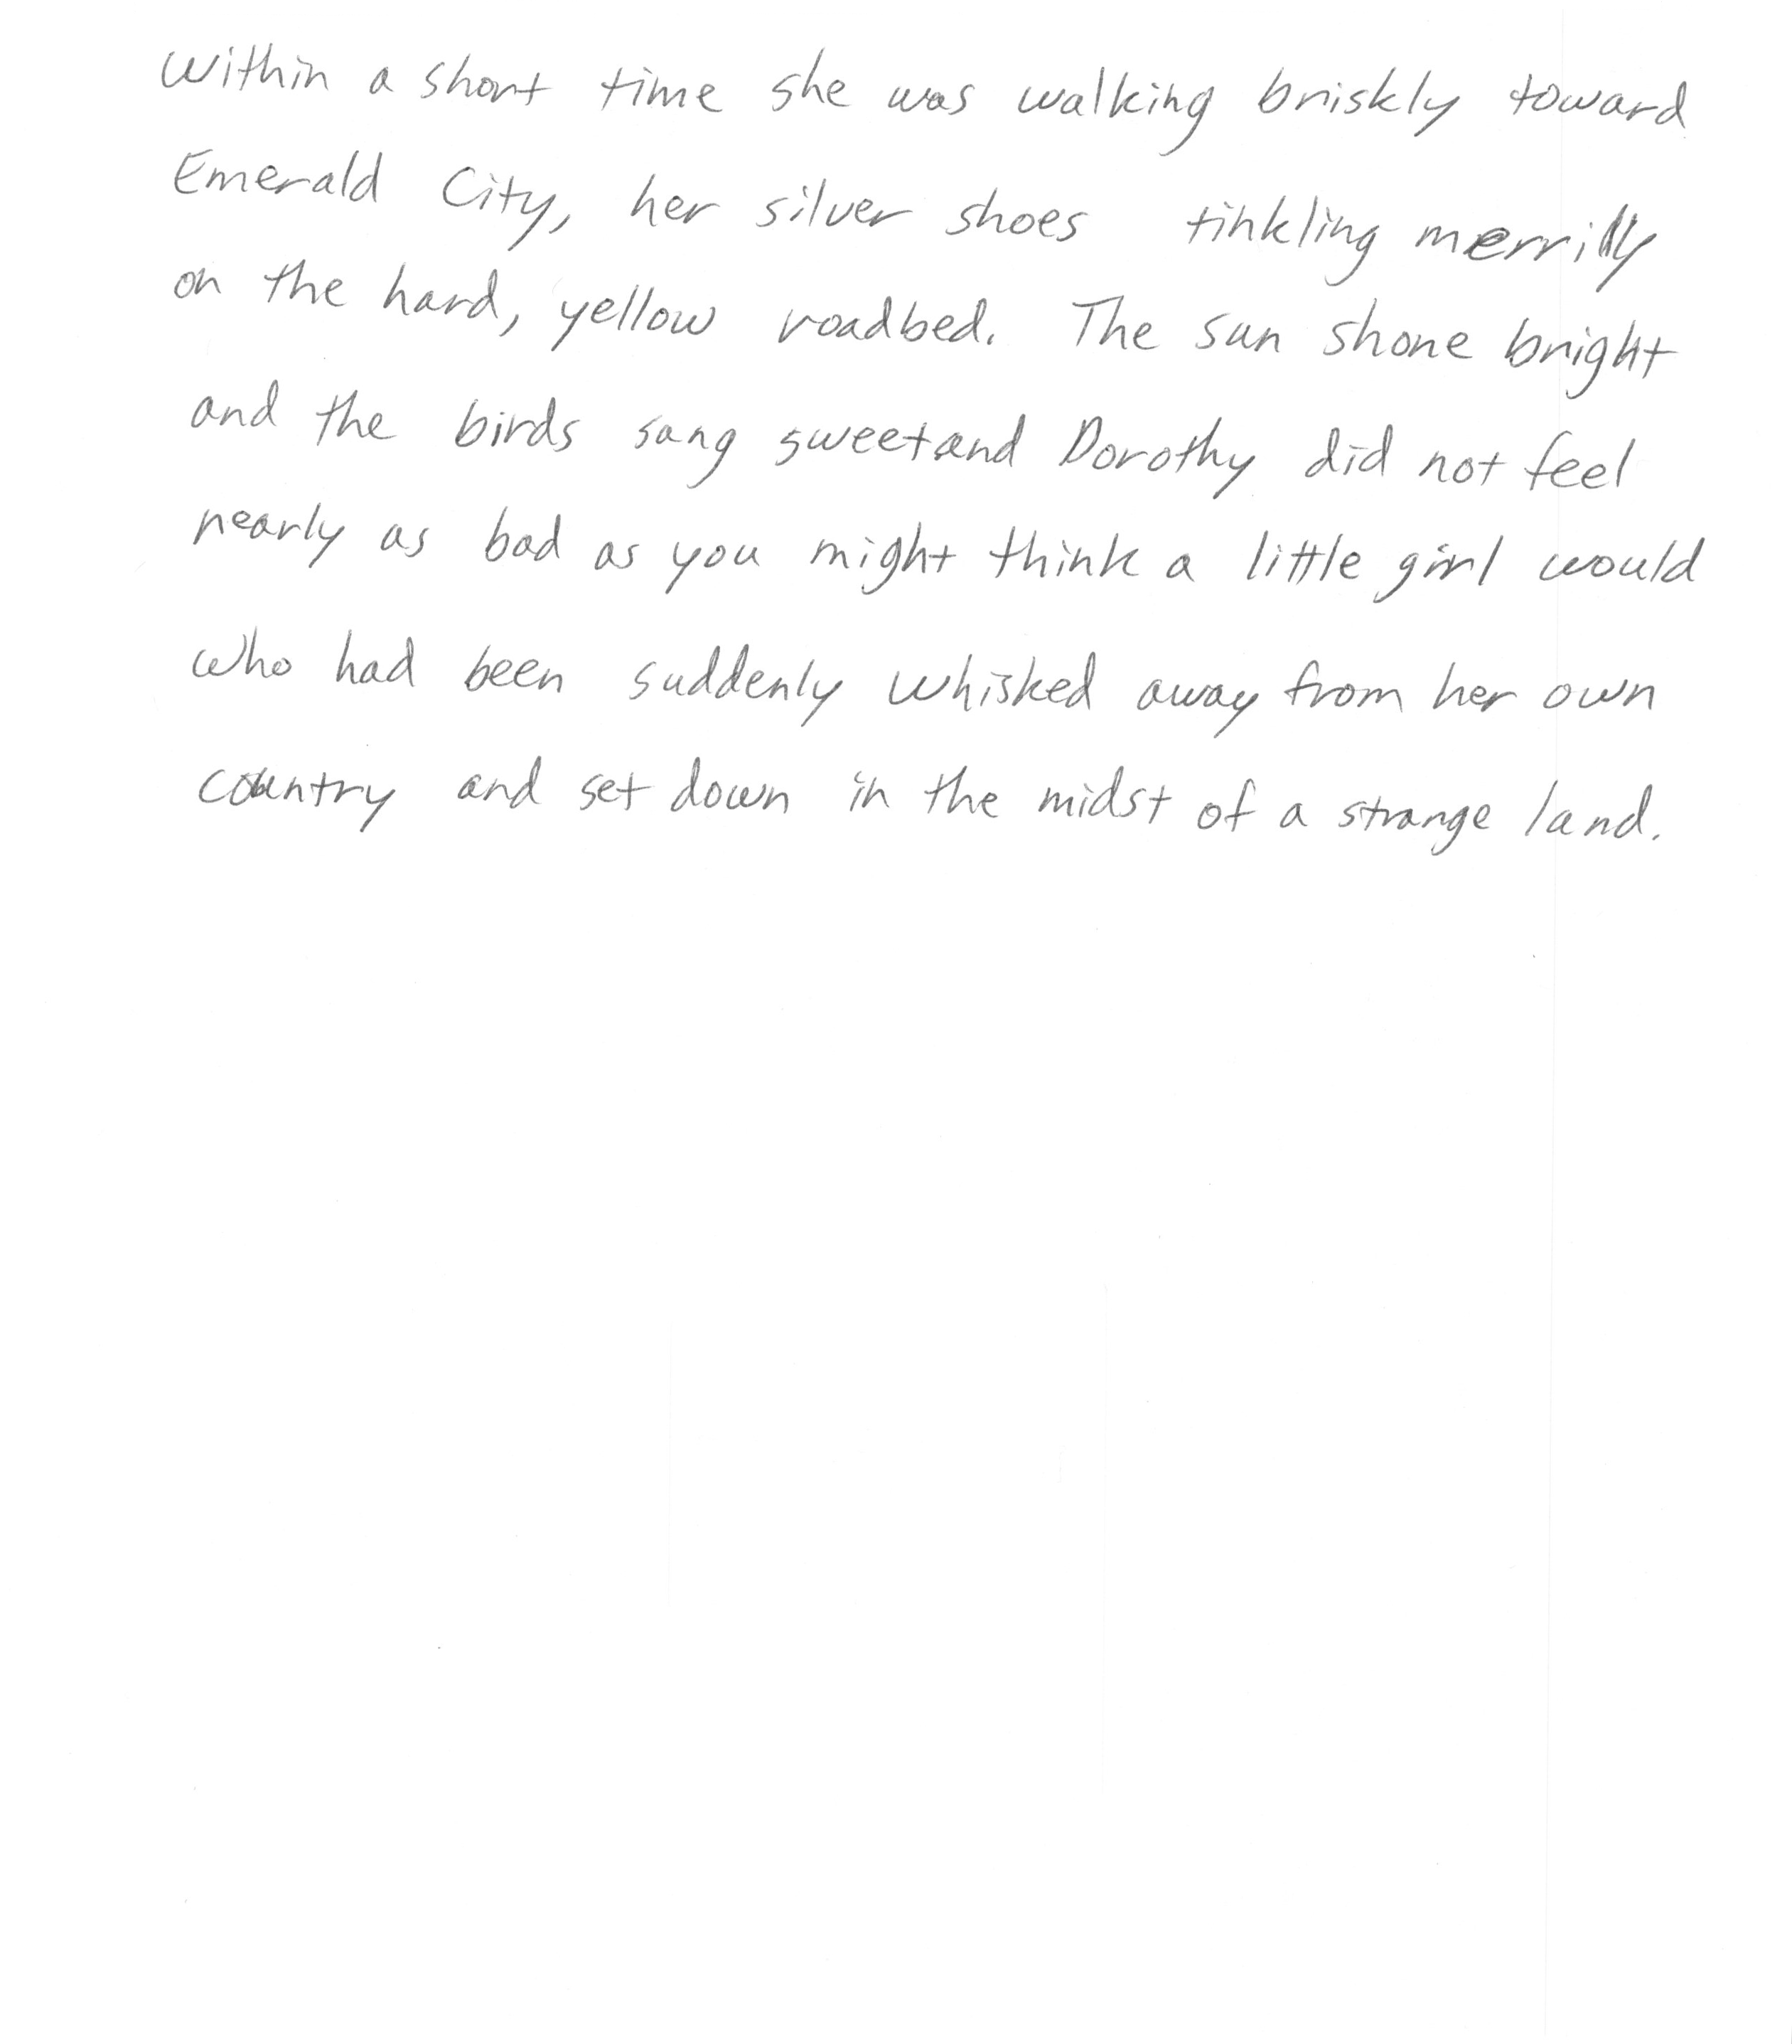 Within a short time she was walking briskly toward
Emerald City, her silver shoes tinkling merrily
on the hard, yellow roadbed. The sun shone bright
and the birds sang sweet and Dorothy did not feel
nearly as bad as you might think a little girl would
who had been suddenly whisked away from her own
country and set down in the midst of a strange land.